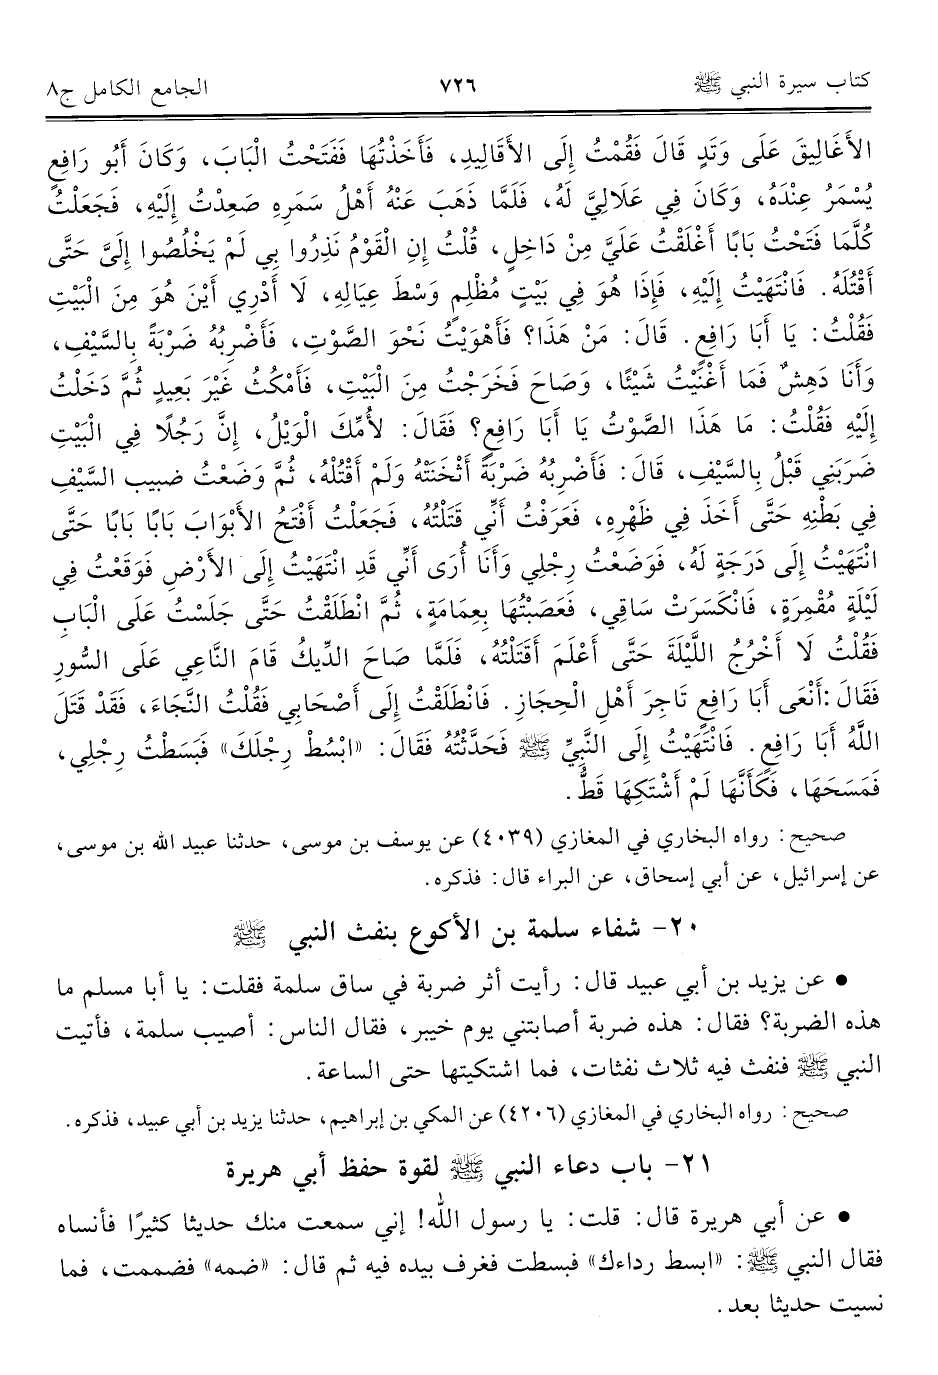 كتاب سيرة النبي ﷺ ٧٢٦ الجامع الكامل ج٨
الأَغَالِيقَ عَلَى وَتَدٍ قَالَ فَقُمْتُ إِلَى الأَقَالِيدِ، فَأَخَذْتُهَا فَفَتَحْتُ الْبَابَ، وَكَانَ أَبُو رَافِعٍ
يُسْمَرُ عِنْدَهُ، وَكَانَ فِي عَلَالِيَّ لَهُ، فَلَمَّا ذَهَبَ عَنْهُ أَهْلُ سَمَرِهِ صَعِدْتُ إِلَيْهِ، فَجَعَلْتُ
كُلَّمَا فَتَحْتُ بَابًا أَغْلَقْتُ عَلَيَّ مِنْ دَاخِلٍ، قُلْتُ إِنِ الْقَوْمُ نَذِرُوا بِي لَمْ يَخْلُصُوا إِلَىَّ حَتَّى
أَقْتُلَهُ. فَانْتَهَيْتُ إِلَيْهِ، فَإِذَا هُوَ فِي بَيْتٍ مُظْلِمٍ وَسْطَ عِيَالِهِ، لَا أَدْرِي أَيْنَ هُوَ مِنَ الْبَيْتِ
فَقُلْتُ: يَا أَبَا رَافِعٍ. قَالَ: مَنْ هَذَا؟ فَأَهْوَيْتُ نَحْوَ الصَّوْتِ، فَأَضْرِبُهُ ضَرْبَةً بِالسَّيْفِ،
وَأَنَا دَهِشٌ فَمَا أَغْنَيْتُ شَيْئًا، وَصَاحَ فَخَرَجْتُ مِنَ الْبَيْتِ، فَأَمْكُثُ غَيْرَ بَعِيدٍ ثُمَّ دَخَلْتُ
إِلَيْهِ فَقُلْتُ: مَا هَذَا الصَّوْتُ يَا أَبَا رَافِعٍ؟ فَقَالَ: لأُمِّكَ الْوَيْلُ، إِنَّ رَجُلًا فِي الْبَيْتِ
ضَرَبَنِي قَبْلُ بِالسَّيْفِ، قَالَ: فَأَضْرِبُهُ ضَرْبَةً أَثْخَنَتْهُ وَلَمْ أَقْتُلْهُ، ثُمَّ وَضَعْتُ ضبيب السَّيْفِ
فِي بَطْنِهِ حَتَّى أَخَذَ فِي ظَهْرِهِ، فَعَرَفْتُ أَنِّي قَتَلْتُهُ، فَجَعَلْتُ أَفْتَحُ الأَبْوَابَ بَابًا بَابًا حَتَّى
انْتَهَيْتُ إِلَى دَرَجَةٍ لَهُ، فَوَضَعْتُ رِجْلِي وَأَنَا أُرَى أَنِّي قَدِ انْتَهَيْتُ إِلَى الأَرْضِ فَوَقَعْتُ فِي
لَيْلَةٍ مُقْمِرَةٍ، فَانْكَسَرَتْ سَاقِي، فَعَصَبْتُهَا بِعِمَامَةٍ، ثُمَّ انْطَلَقْتُ حَتَّى جَلَسْتُ عَلَى الْبَابِ
فَقُلْتُ لَا أَخْرُجُ اللَّيْلَةَ حَتَّى أَعْلَمَ أَقَتَلْتُهُ، فَلَمَّا صَاحَ الدِّيكُ قَامَ النَّاعِي عَلَى السُّورِ
فَقَالَ :أَنْعَى أَبَا رَافِعٍ تَاجِرَ أَهْلِ الْحِجَازِ. فَانْطَلَقْتُ إِلَى أَصْحَابِي فَقُلْتُ النَّجَاءَ، فَقَدْ قَتَلَ
اللَّهُ أَبَا رَافِعٍ. فَانْتَهَيْتُ إِلَى النَّبِيِّ ﷺ فَحَدَّثْتُهُ فَقَالَ: «ابْسُطْ رِجْلَكَ» فَبَسَطْتُ رِجْلِي،
فَمَسَحَهَا، فَكَأَنَّهَا لَمْ أَشْتَكِهَا قَطُّ.
صحيح: رواه البخاري في المغازي (٤٠٣٩) عن يوسف بن موسى، حدثنا عبيد الله بن موسى،
عن إسرائيل، عن أبي إسحاق، عن البراء قال: فذكره.
٢٠- شفاء سلمة بن الأكوع بنفث النبي ﷺ
• عن يزيد بن أبي عبيد قال: رأيت أثر ضربة في ساق سلمة فقلت: يا أبا مسلم ما
هذه الضربة؟ فقال: هذه ضربة أصابتني يوم خيبر، فقال الناس: أصيب سلمة، فأتيت
النبي ﷺ فنفث فيه ثلاث نفثات، فما اشتكيتها حتى الساعة.
صحيح: رواه البخاري في المغازي (٤٢٠٦) عن المكي بن إبراهيم، حدثنا يزيد بن أبي عبيد، فذكره.
٢١- باب دعاء النبي ﷺ لقوة حفظ أبي هريرة
• عن أبي هريرة قال: قلت: يا رسول الله! إني سمعت منك حديثا كثيرًا فأنساه
فقال النبي ﷺ: «ابسط رداءك» فبسطت فغرف بيده فيه ثم قال: «ضمه» فضممت، فما
نسيت حديثا بعد.